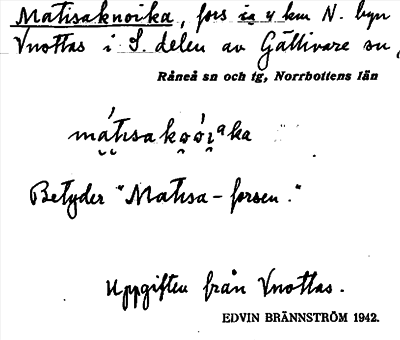 Matisaknoika, fors i 4 km N. byn
Vnottas i S. delen av Gällivare sn,
Råneå sn och tg, Norrbottens län
Betyder "Matisa-forsen."
Uppgiften från Vnottas.
EDVIN BRÄNNSTRÖM 1942.